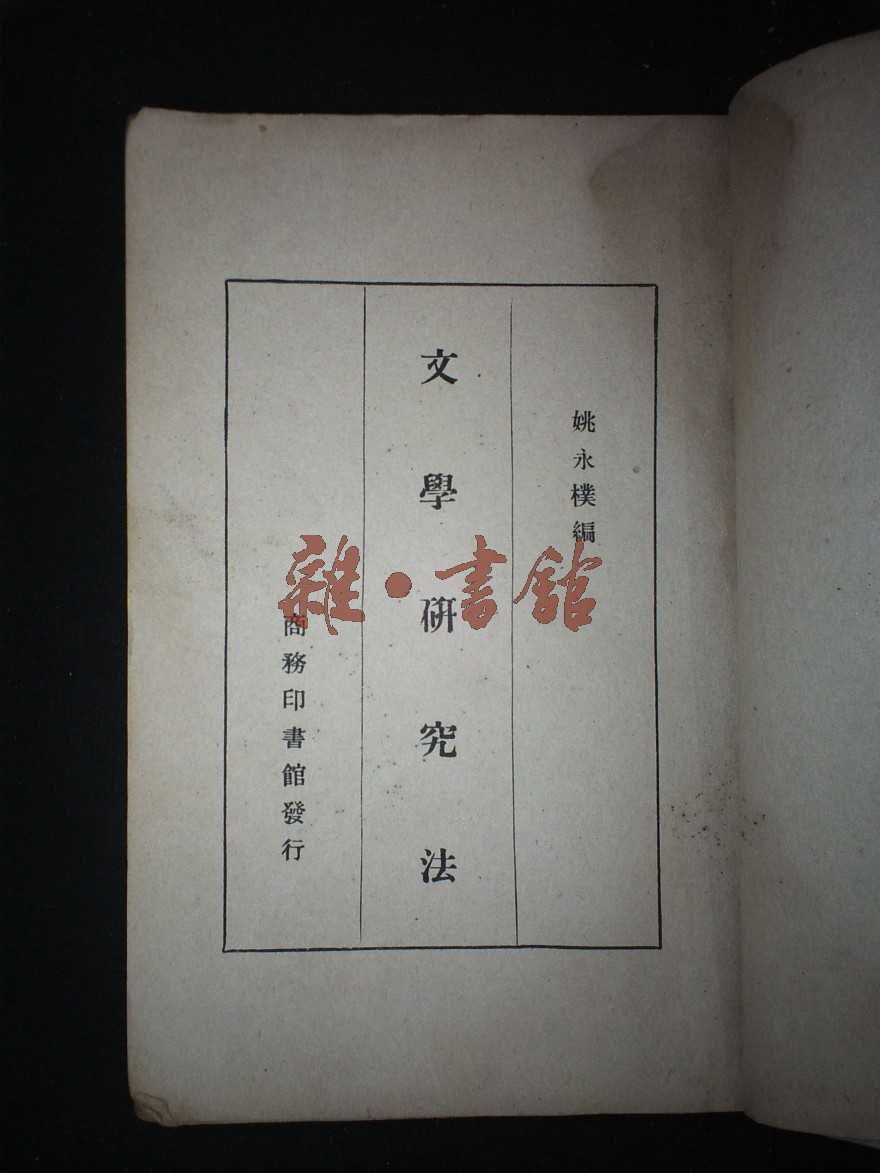 姚永樸編
文學研究法
商務印書館發行
雜·書館